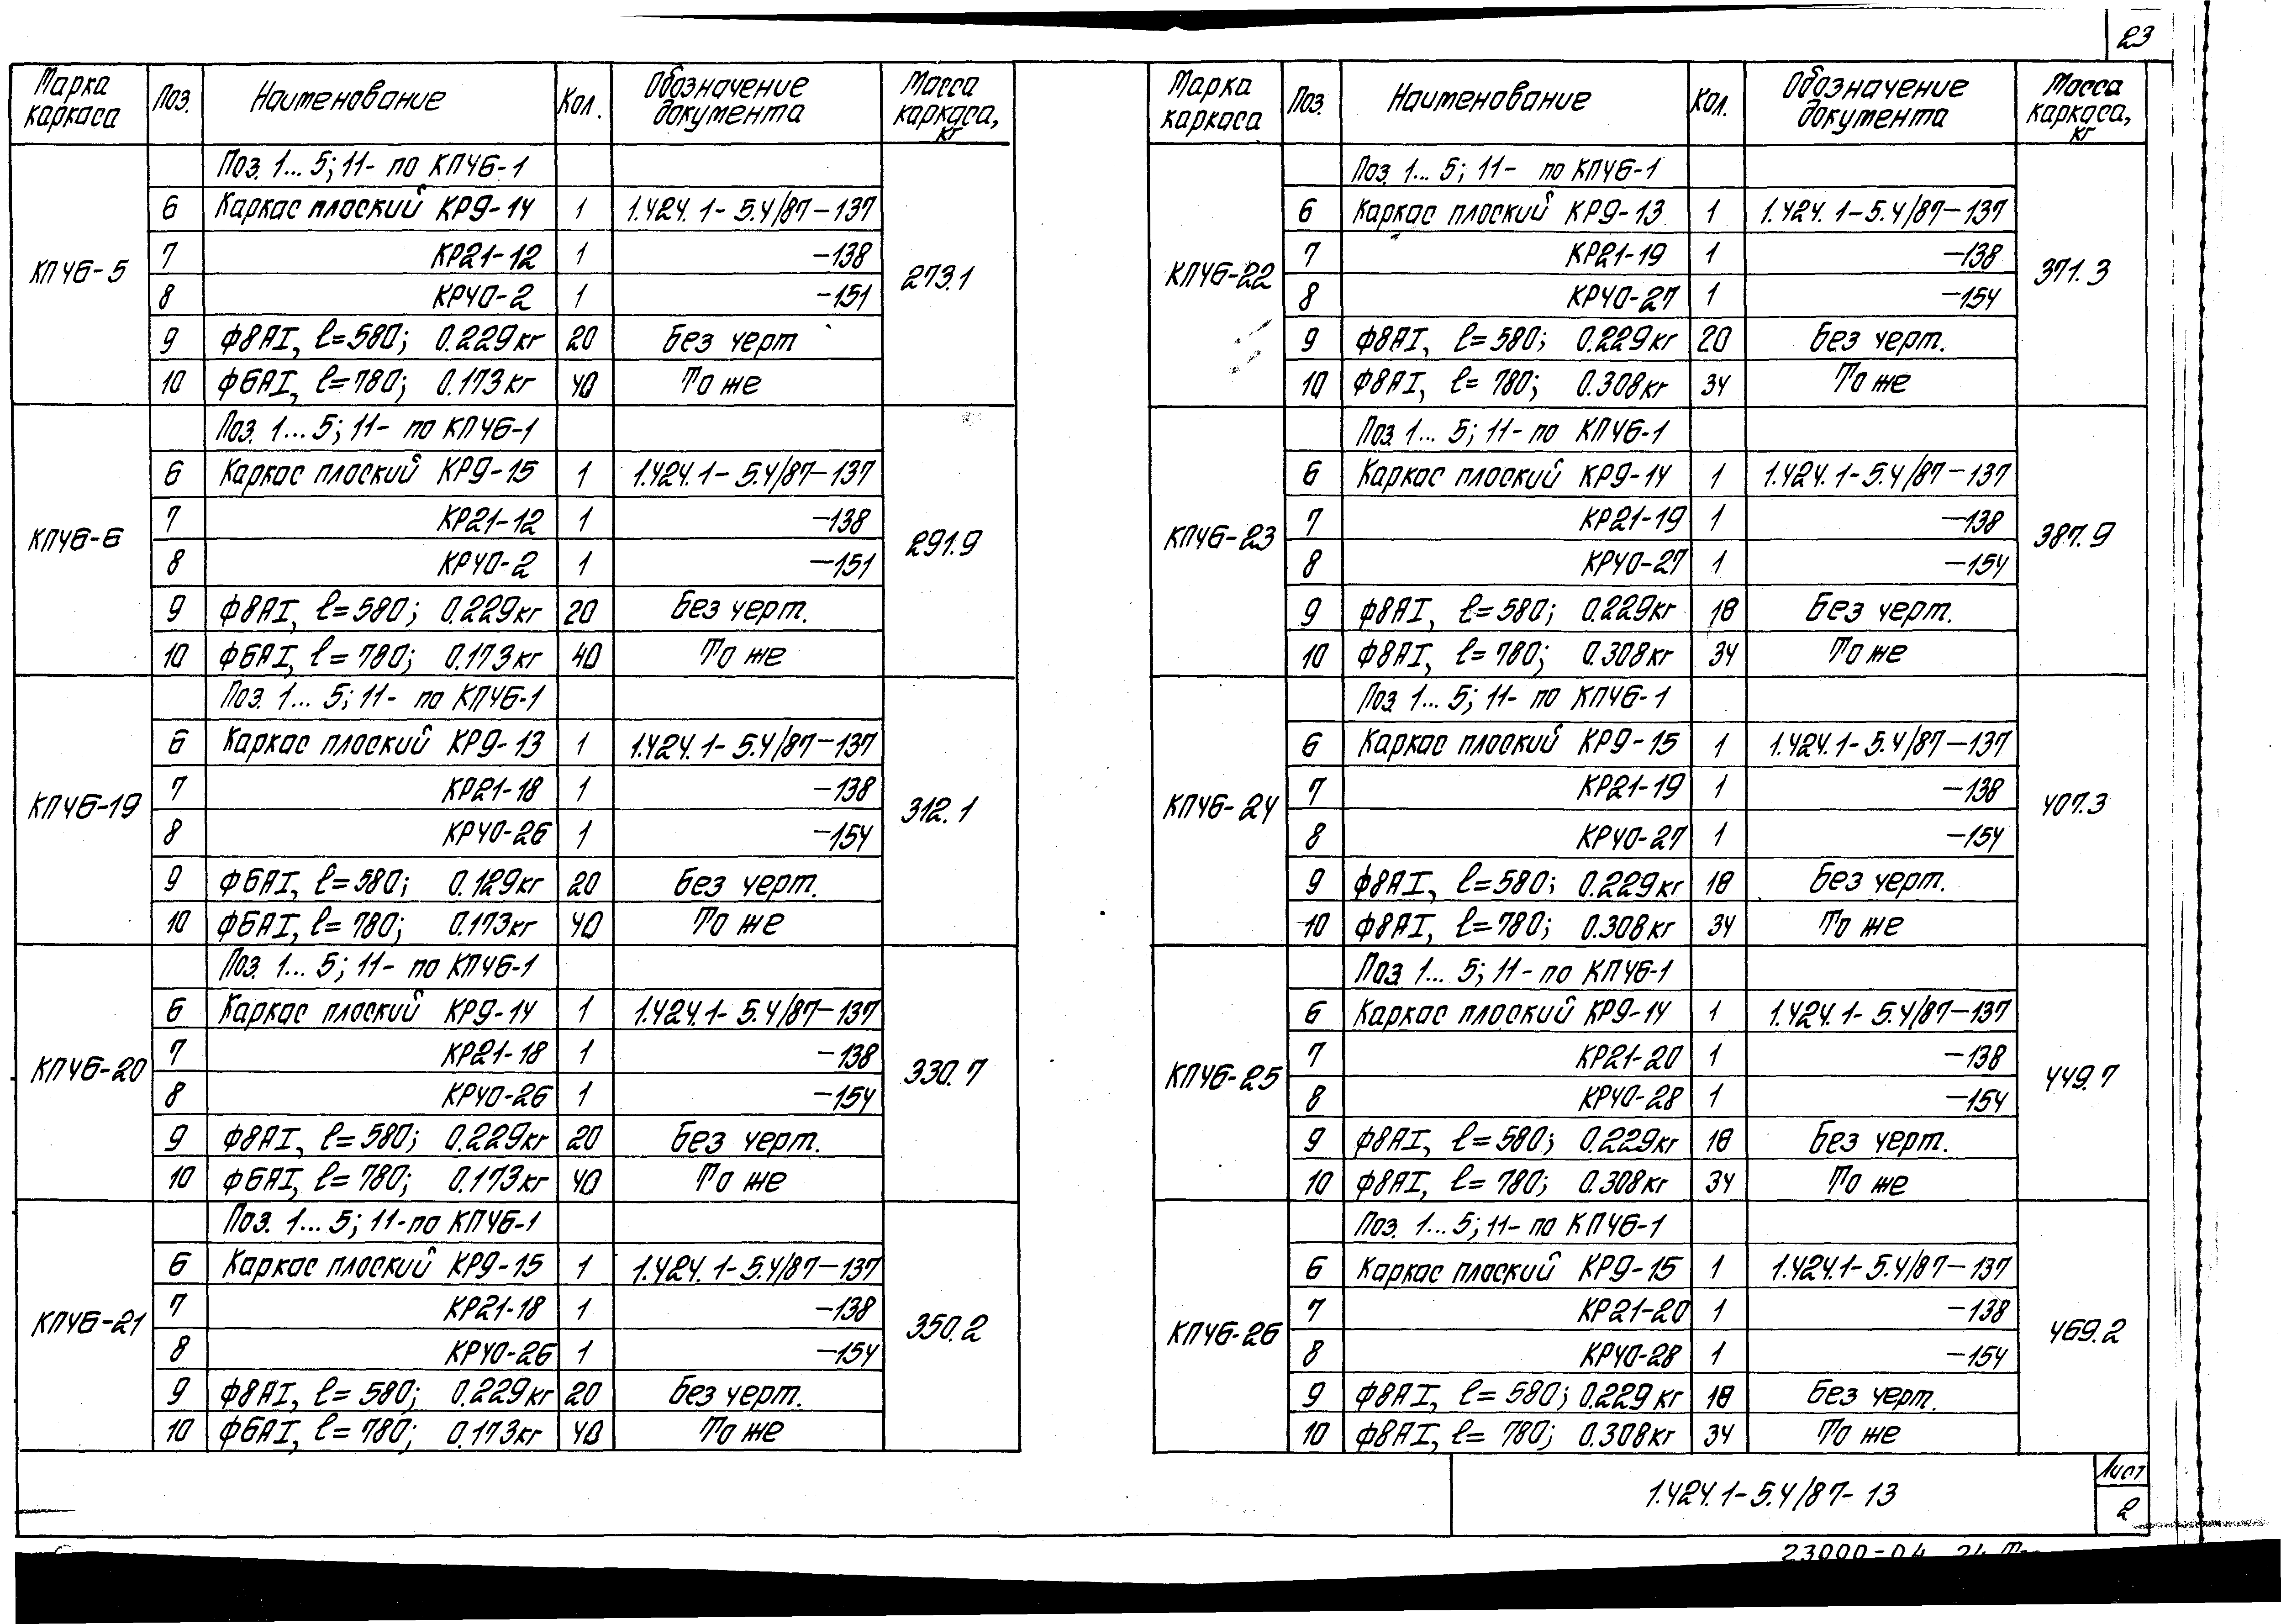 23
Марка каркаса Поз. Наименование Кол. Обозначение документа Масса каркаса, кг
Поз. 1... 5; 11- по КП46-1
КП46-5 273.1
6 Каркас плоский КР9-14 1 1.424.1-5.4/87-137
7 КР21-12 1 -138
8 КР40-2 1 -151
9 Ф8АI, ℓ=580; 0.229кг 20 Без черт
10 Ф6АI, ℓ=780; 0.173кг 40 То же
Поз. 1... 5; 11- по КП46-1
КП46-6 291.9
6 Каркас плоский КР9-15 1 1.424.1-5.4/87-137
7 КР21-12 1 -138
8 КР40-2 1 -151
9 Ф8АI, ℓ=580; 0.229кг 20 Без черт.
10 Ф6АI, ℓ=780; 0.173кг 40 То же
Поз. 1... 5; 11- по КП46-1
КП46-19 312.1
6 Каркас плоский КР9-13 1 1.424.1-5.4/87-137
7 КР21-18 1 -138
8 КР40-26 1 -154
9 Ф6АI, ℓ=580; 0.129кг 20 Без черт.
10 Ф6АI, ℓ=780; 0.173кг 40 То же
Поз. 1... 5; 11- по КП46-1
КП46-20 330.7
6 Каркас плоский КР9-14 1 1.424.1-5.4/87-137
7 КР21-18 1 -138
8 КР40-26 1 -154
9 Ф8АI, ℓ=580; 0.229кг 20 Без черт.
10 Ф6АI, ℓ=780; 0.173кг 40 То же
Поз. 1... 5; 11- по КП46-1
КП46-21 350.2
6 Каркас плоский КР9-15 1 1.424.1-5.4/87-137
7 КР21-18 1 -138
8 КР40-26 1 -154
9 Ф8АI, ℓ=580; 0.229кг 20 Без черт.
10 Ф6АI, ℓ=780; 0.173кг 40 То же
Марка каркаса Поз. Наименование Кол. Обозначение документа Масса каркаса, кг
Поз. 1... 5; 11- по КП46-1
КП46-22 371.3
6 Каркас плоский КР9-13 1 1.424.1-5.4/87-137
7 КР21-19 1 -138
8 КР40-27 1 -154
9 Ф8АI, ℓ=580; 0.229кг 20 Без черт.
10 Ф8АI, ℓ=780; 0.308кг 34 То же
Поз. 1... 5; 11- по КП46-1
КП46-23 387.9
6 Каркас плоский КР9-14 1 1.424.1-5.4/87-137
7 КР21-19 1 -138
8 КР40-27 1 -154
9 Ф8АI, ℓ=580; 0.229кг 18 Без черт.
10 Ф8АI, ℓ=780; 0.308кг 34 То же
Поз. 1... 5; 11- по КП46-1
КП46-24 407.3
6 Каркас плоский КР9-15 1 1.424.1-5.4/87-137
7 КР21-19 1 -138
8 КР40-27 1 -154
9 Ф8АI, ℓ=580; 0.229кг 18 Без черт.
10 Ф8АI, ℓ=780; 0.308кг 34 То же
Поз. 1... 5; 11- по КП46-1
КП46-25 449.7
6 Каркас плоский КР9-14 1 1.424.1-5.4/87-137
7 КР21-20 1 -138
8 КР40-28 1 -154
9 Ф8АI, ℓ=580; 0.229кг 18 Без черт.
10 Ф8АI, ℓ=780; 0.308кг 34 То же
Поз. 1... 5; 11- по КП46-1
КП46-26 469.2
6 Каркас плоский КР9-15 1 1.424.1-5.4/87-137
7 КР21-20 1 -138
8 КР40-28 1 -154
9 Ф8АI, ℓ=580; 0.229кг 18 Без черт.
10 Ф8АI, ℓ=780; 0.308кг 34 То же
1.424.1-5.4/87-13
Лист
2
23000-04 24